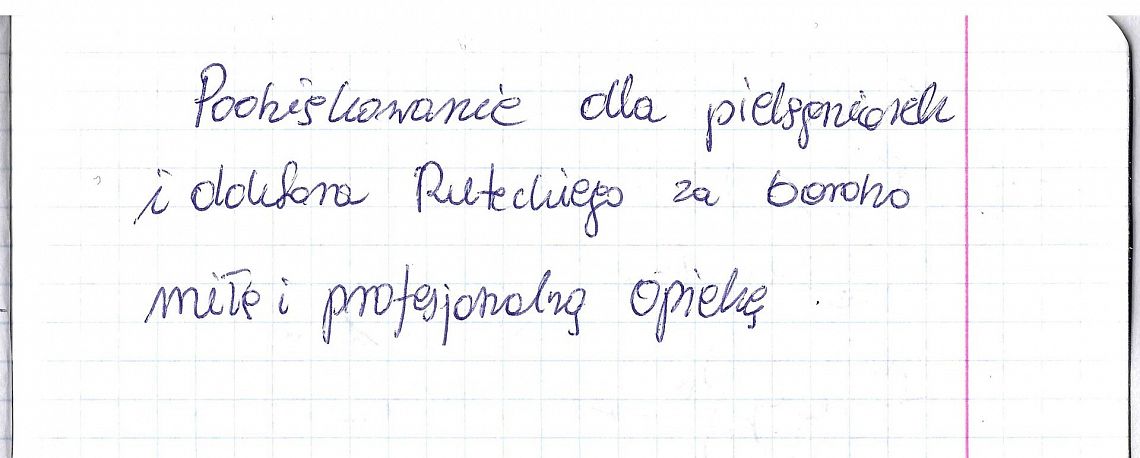 Podziękowanie dla pielęgniarek
i doktora Ruteckiego za bardzo
miłę i profesjonalną opiekę.